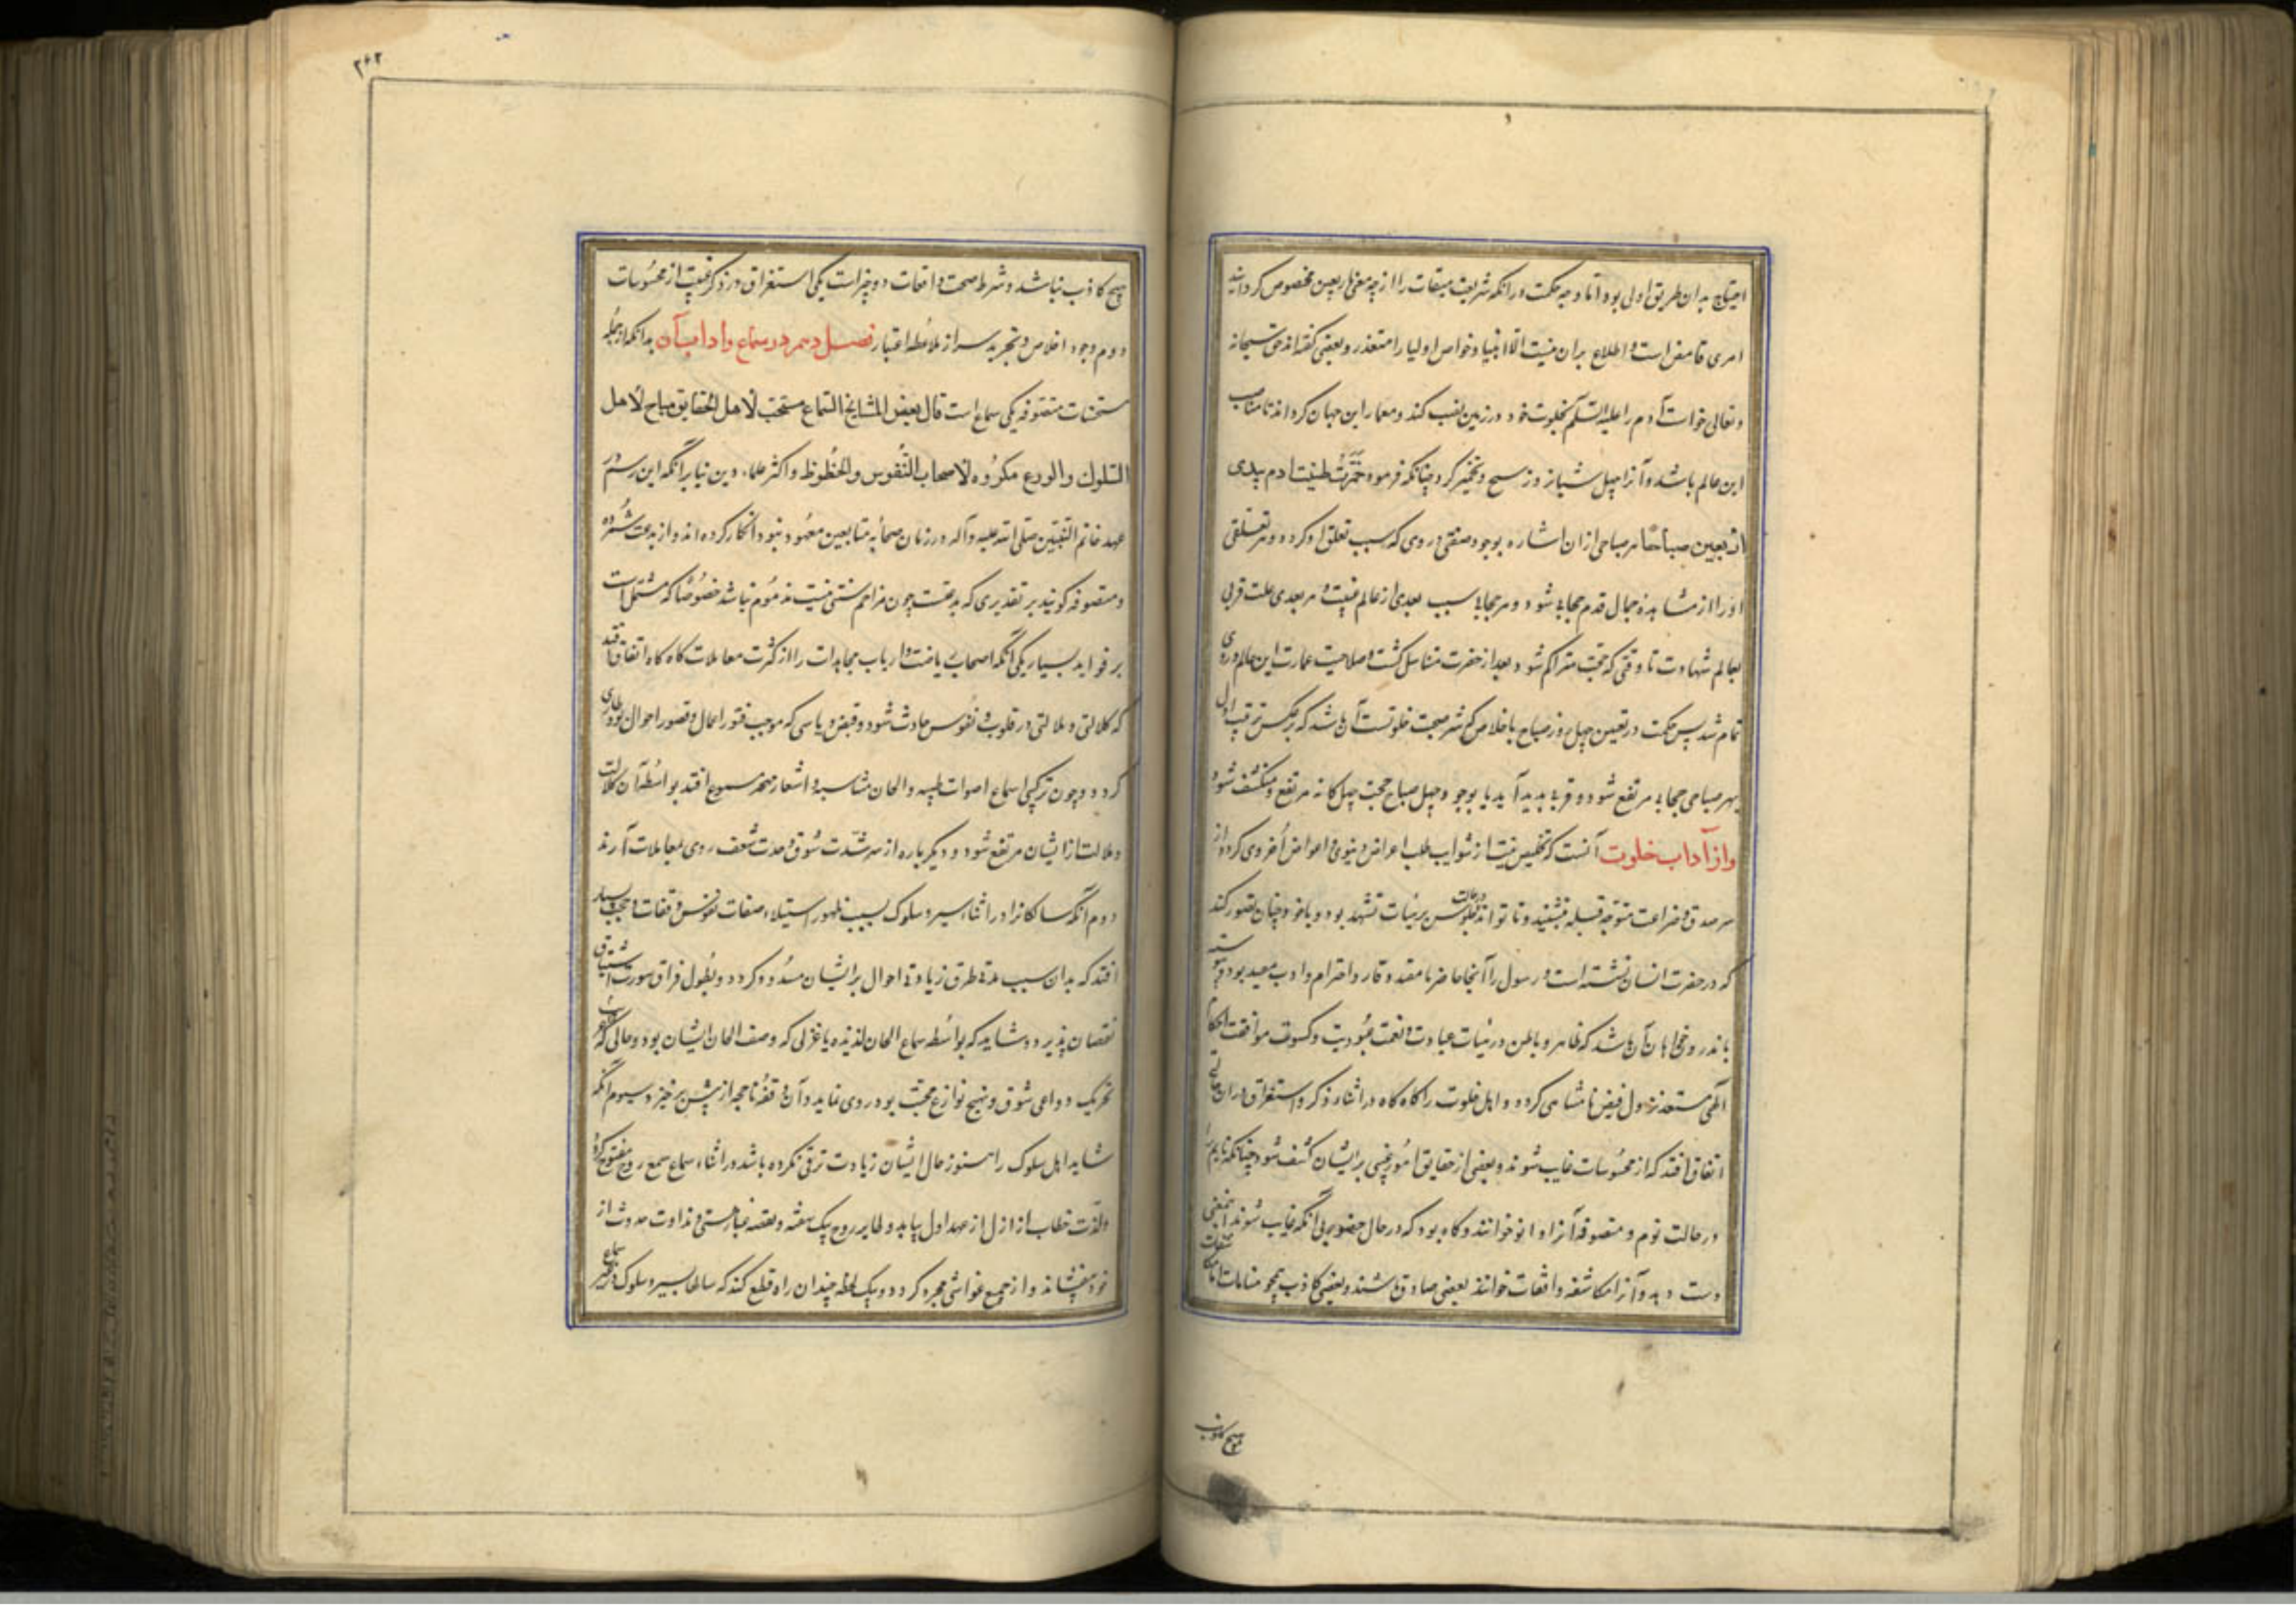 احتیاج بدان طریق اولی بود اما وجه حکمت در آنکه شریعت میقات را از چه معنی باربعین مخصوص گردانید
امری غامض است و اطلاع بر آن نیست الا انبیا و خواص اولیا را متعذر و بعضی گفته‌اند حق سبحانه
و تعالی خواست آدم را علیه السلام بخلوت خود در زمین نصب کند و معمار این جهان گرداند تا مناسب
این عالم باشد و آنرا چهل شبانروز تسبیح و تخمیر کرد چنانکه فرمود خمّرت طینت ادم بیدی
اربعین صباحا هر صباحی از ان اشاره بوجود صفتی در وی که سبب تعلق او گردد و هر تعلقی
او را از مشاهدهٔ جمال قدم حجابی شود و هر حجابی سبب بعدی از عالم غیب و هر بعدی علت قربی
بعالم شهادت تا وقتی که حجب متراکم شود و بعد از حضرت متناسل گشت و صلاحیت عمارت این عالم در وی
تمام شد پس حکمت در تعیین چهل روز صباح باخلاص که شرط صحت خلوتست آن باشد که بر عکس ترتیب اول
بهر صباحی حجابی مرتفع شود و قربی پدید آید یا بوجود چهل صباح حجب چهل‌گانه مرتفع و منکشف شود
و از آداب خلوت آنست که تخلیص نیت از شوایب طلب اعراض دنیوی و اعواض اخروی کرده از
سر صدق و ضراعت متوجه قبله نشیند و تا تواند در حالت جلوس بر هیات تشهد بود و با خود چنان تصور کند
که در حضرت انسان نشسته است و رسول را آنجا حاضر با مقعد وقار و احترام و ادب
آلهی مستعد نزول فیض نامتناهی گردد و اهل خلوت را گاه گاه در اثناء ذکر و استغراق در ان حالتی
اتفاق افتد که از محسوسات غایب شوند و بعضی از حقایق امور غیبی بر ایشان کشف شود چنانکه نایم را
در حالت نوم و متصوفه آنرا واقعه خوانند و گاه بود که در حال حضور بی آنکه غایب شوند اینمعنی
دست دهد و آنرا مکاشفه و اقعات خوانند بعضی صادق باشند و بعضی کاذب همچو منامات اما مکاشفات
هیچ کاذب
۲۶۲
هیچ کاذب نباشد و شرط صحت واقعات دو چیز است یکی استغراق در ذکر و غیبت از محسوسات
دوم وجود اخلاص و تجرید سر از ملاحظه اغیار فصل دهم در سماع و اداب آن بدانکه از جمله
مستحسنات متصوفه یکی سماع است قال بعض المشایخ السماع مستحب لاهل الحقایق مباح لاهل
السلوک والورع مکروه لاصحاب النفوس والحظوظ و اکثر علماء دین بنا بر آنکه این رسم در
عهد خاتم النبیین صلی الله علیه وآله و در زمان صحابه متابعین معهود نبود انکار کرده‌اند و از بدعت شمرده
و متصوفه گویند بر تقدیری که بدعت چون مزاحم سنتی نیست مذموم نباشد خصوصا که مشتملست
بر فواید بسیار یکی آنکه اصحاب ریاضت و ارباب مجاهدات را از کثرت معاملات گاه گاه اتفاق افتد
که کلالتی و ملالتی در قلوب و نفوس حادث شود و قبض و یاسی که موجب فتور اعمال و قصور احوال بود طاری
گردد و چون ترکیبی سماع اصوات طیبه والحان متناسبه و اشعار مسموع افتد بواسطهٔ آن کلالت
و ملالت از ایشان مرتفع شود و دیگر باره از سر شدت شوق و حدت شعف روی بمعاملات آرند
دوم آنکه سالکانرا در اثناء سیر و سلوک بسبب ظهور استیلاء صفات نفوس وقفات و حجب بسیار
افتد که بدان سبب مدتی طرق زیادتی احوال بر ایشان مسدود گردد و بطول فراق سورت اشتیاق
نقصان پذیرد و شاید که بواسطه سماع الحان لذیذه یا غزلی که وصف الحال ایشان بود و حالی که
تحریک دواعی شوق و تهییج نوازع محبت بود روی نماید و آن وقفه یا حجبه از پیش برخیزد سیوم آنکه
شاید اهل سلوک را هنوز حال ایشان زیادت ترقی نکرده باشد در اثناء سماع سمع روح مفتوح گردد
و لذت خطاب ازازل از عهد اول بیابد و طایر روح بیک نفضه غبار هستی و نداوت حدوث از
خود بیفشاند و از جمیع غواشی مجرد گردد و بیک لحظه چندان راه قطع کند که سالها بسیر و سلوک در غیر سماع